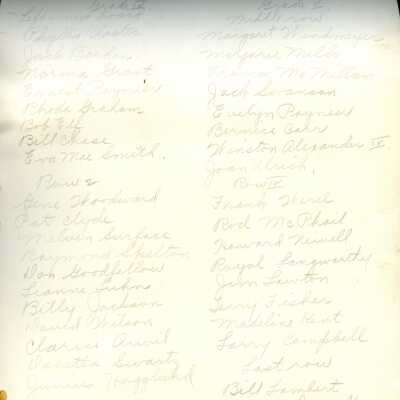 Grade 2
Phyllis
Jack Borden
Norma Grant
Ernest Poynier
Rhoda Graham
Bob Elf
Bill Chese
Eva Mee Smith.
Row 2
Gene Woodward
Pat Clyde
Melvin Surface
Raymond Skelton
Don Goodfellow
Leanne
Billy Jackson
David Wilson
Clarice
Swartz
Junior
Grade 2
Middle row
Margaret Windmeyer
Marjorie Mills
McMillan
Jack Swanson
Evelyn Poynier
Bernice Carr
Winston Alexander IV
Joan Ulrich,
Row IV
Frank
Rod McPhail
Howard Newell
Royal Langworthy
Jim Lawton
Terry Fesher
Madeline Kent
Larry Campbell
Last row
Bill Lambert